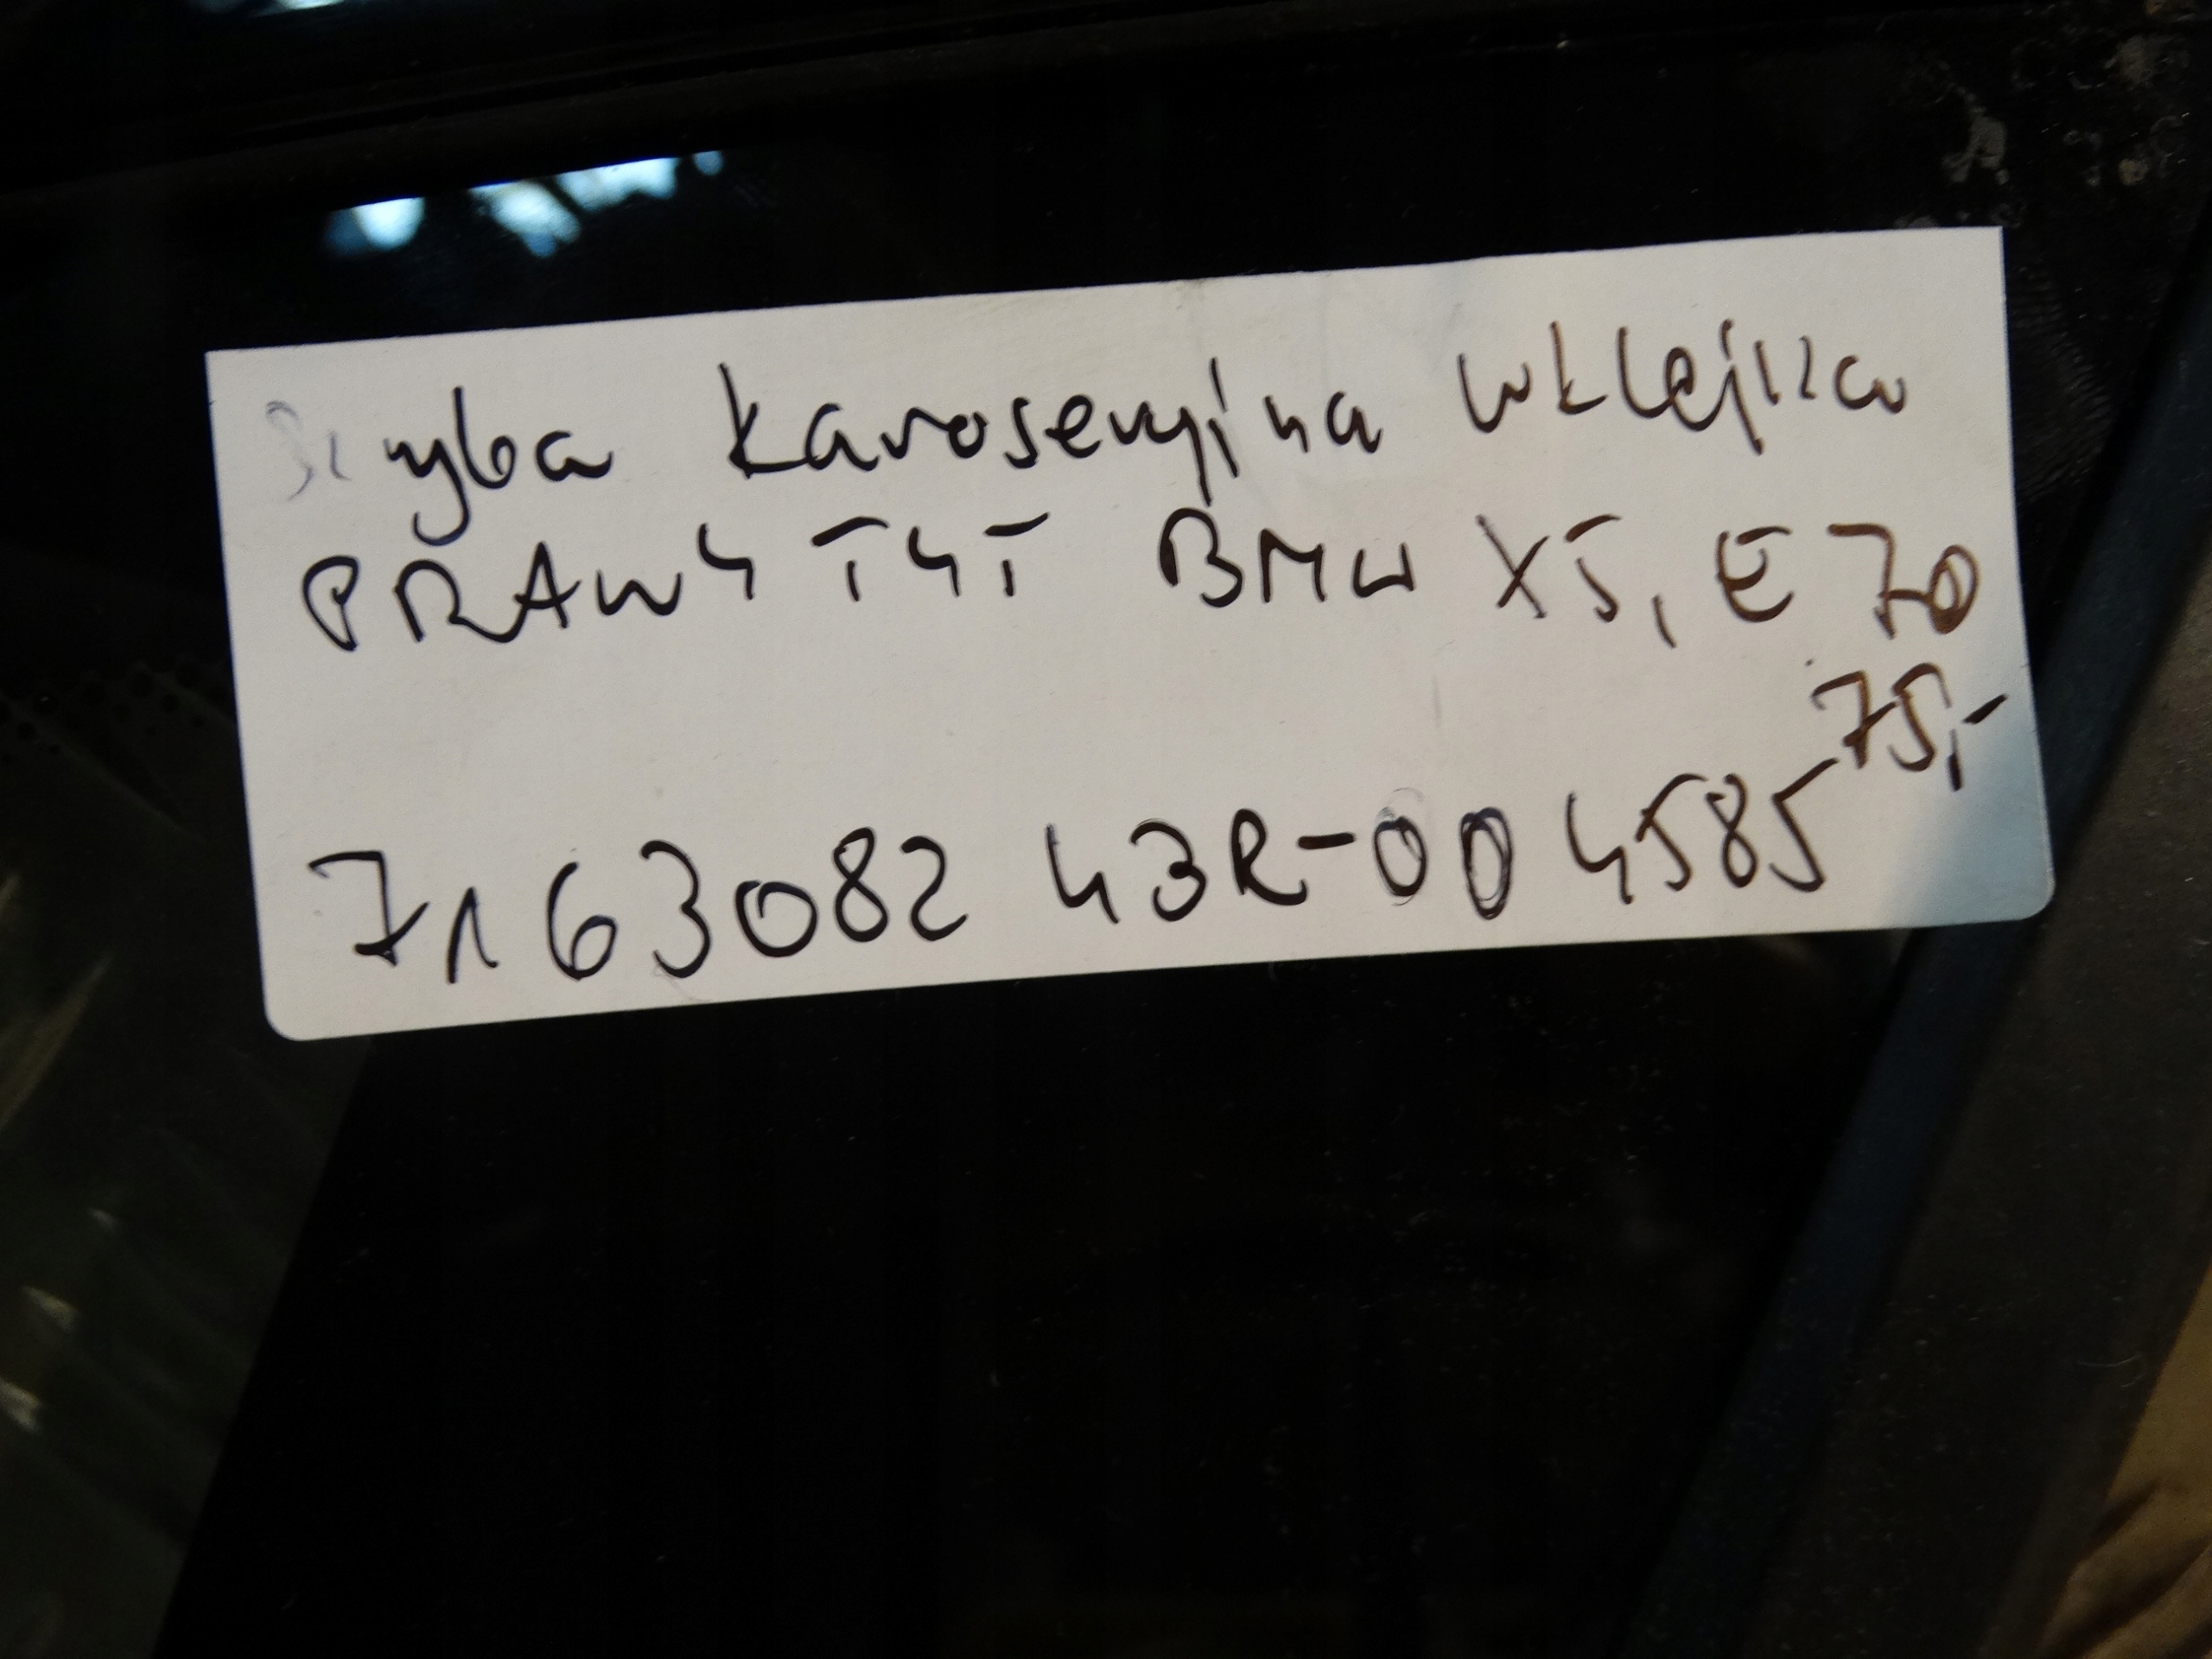 Szyba karoseryjna wklejka
PRAWY TYŁ BMW X5, E70
75,-
7163082 43R-004585